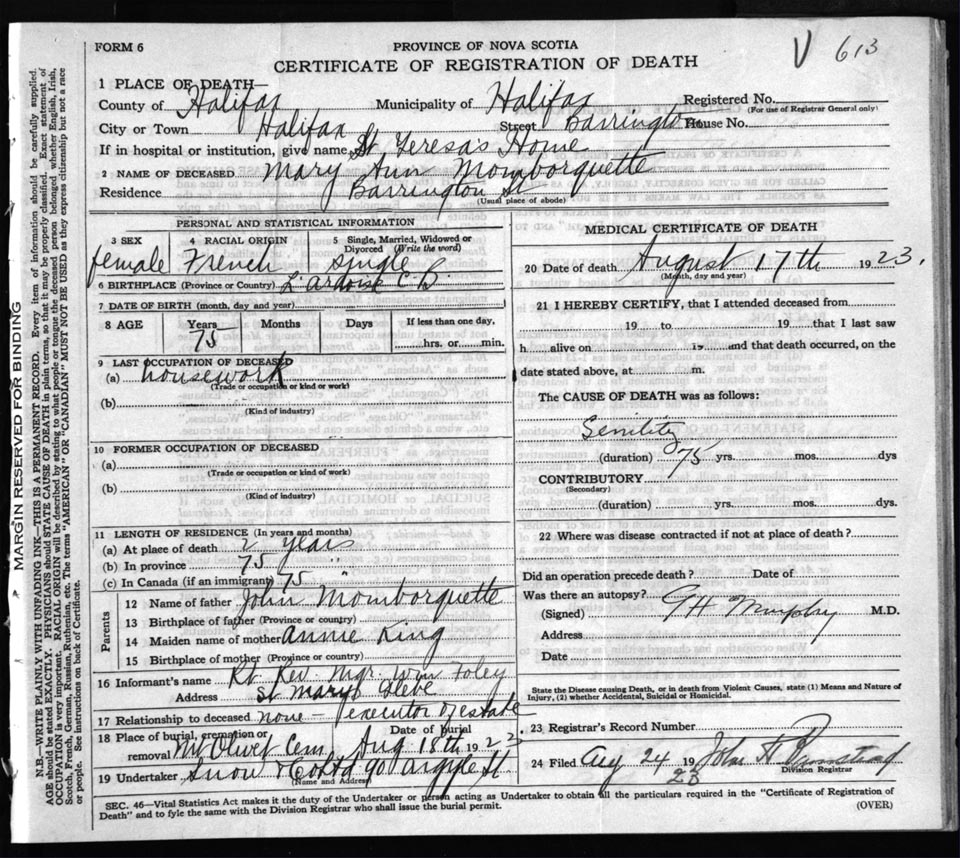 FORM 6
PROVINCE OF NOVA SCOTIA
V 613
CERTIFICATE OF REGISTRATION OF DEATH
1 PLACE OF DEATH—
County of Halifax Municipality of Halifax Registered No.
(For use of Registrar General only)
City or Town Halifax Street Barrington House No.
If in hospital or institution, give name, St Teresa's Home
2 NAME OF DECEASED Mary Ann Momborquette
Residence Barrington St
(Usual place of abode)
PERSONAL AND STATISTICAL INFORMATION
3 SEX 4 RACIAL ORIGIN 5 Single, Married, Widowed or Divorced (Write the word)
female French single
6 BIRTHPLACE (Province or Country) L'ardoise C B.
7 DATE OF BIRTH (month, day and year)
8 AGE Years Months Days If less than one day,
75 hrs. or min.
9 LAST OCCUPATION OF DECEASED
(a) housework
(Trade or occupation or kind of work)
(b)
(Kind of industry)
10 FORMER OCCUPATION OF DECEASED
(a)
(Trade or occupation or kind of work)
(b)
(Kind of industry)
11 LENGTH OF RESIDENCE (In years and months)
(a) At place of death 2 years
(b) In province 75 "
(c) In Canada (if an immigrant) 75 "
Parents
12 Name of father John Momborquette
13 Birthplace of father (Province or country)
14 Maiden name of mother Annie King
15 Birthplace of mother (Province or country)
16 Informant's name Rt Rev. Mgr. Wm Foley
Address St Mary's Glebe
17 Relationship to deceased none executor of estate
18 Place of burial, cremation or removal Mt Olivet Cem. Date of Burial Aug 18th 1923
19 Undertaker Snow & Co Ltd 90 Argyle St.
(Name and Address)
MEDICAL CERTIFICATE OF DEATH
20 Date of death August 17th 1923.
(Month, day and year)
21 I HEREBY CERTIFY, that I attended deceased from
19 to 19 that I last saw
h alive on 19 and that death occurred, on the
date stated above, at m.
The CAUSE OF DEATH was as follows:
Senility
(duration) 75 yrs. mos. dys
CONTRIBUTORY
(Secondary)
(duration) yrs. mos. dys.
22 Where was disease contracted if not at place of death?
Did an operation precede death? Date of
Was there an autopsy?
(Signed) G H Murphy M.D.
Address
Date
State the Disease causing Death, or in death from Violent Causes, state (1) Means and Nature of
Injury, (2) whether Accidental, Suicidal or Homicidal.
23 Registrar's Record Number
24 Filed Aug 24 1923 John H
Division Registrar
SEC. 46—Vital Statistics Act makes it the duty of the Undertaker or person acting as Undertaker to obtain all the particulars required in the "Certificate of Registration of
Death" and to fyle the same with the Division Registrar who shall issue the burial permit.
(OVER)
MARGIN RESERVED FOR BINDING
N.B.—WRITE PLAINLY WITH UNFADING INK—THIS IS A PERMANENT RECORD. Every item of information should be carefully supplied.
AGE should be stated EXACTLY. PHYSICIANS should STATE CAUSE OF DEATH in plain terms, so that it may be properly classified. Exact statement of
OCCUPATION is very important. RACIAL ORIGIN will be described by stating to what people or tongue the deceased person belonged whether English, Irish,
Scotch, French, German, Russian, Ruthenian, etc. The terms "AMERICAN" OR "CANADIAN" MUST NOT BE USED as they express citizenship but not a race
or people. See instructions on back of Certificate.